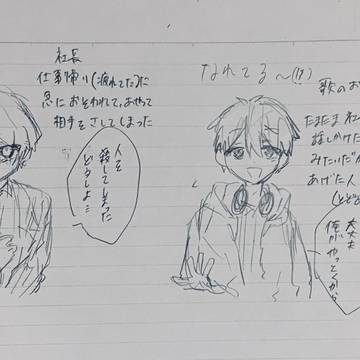 社長
仕事帰り(疲れてた)に
急におそわれて、あやまって
相手をさしてしまった
人を
殺してしまった
どうしよ…
なれてる〜(!?)
歌のお
たまたま社
話しかけた
みたいだが
あげた人
大丈夫
俺がやっとくから